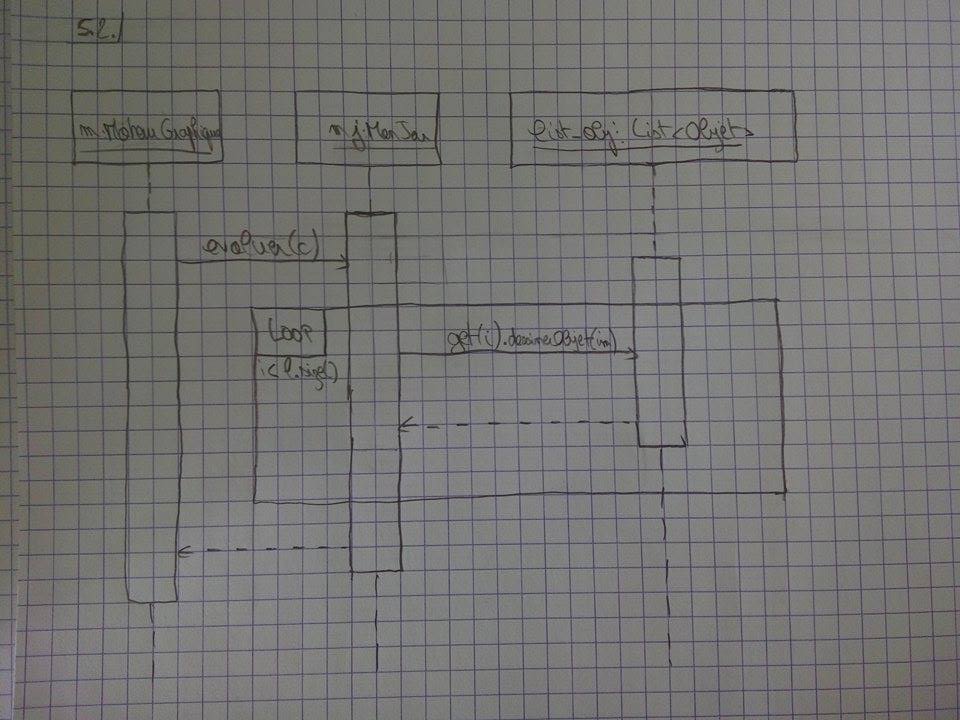 5.2.
m:Moteur Graphique
mj:MonJeu
list_obj: List<Objet>
evoluer(c)
LOOP
get(i).dessinerObjet(im)
i<l.size()